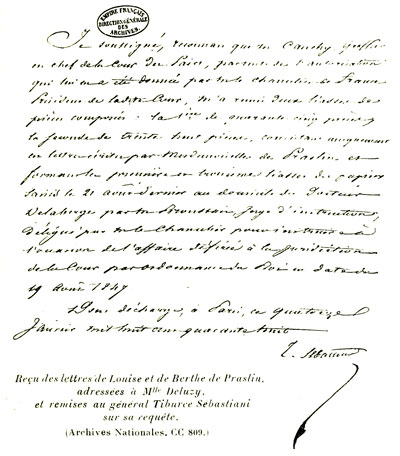 EMPIRE FRANÇAIS
DIRECTION GÉNÉRALE
DES
ARCHIVES
Je soussigné, reconnais que m Cauchy greffier
en chef de la Cour des Pairs, par suite de l'autorisation
qui lui en a été donnée par m. le chancelier de France
Président de ladite Cour, m'a remis deux liasses de
pièces composées : la 1ère de quarante cinq pièces
la seconde de trente huit pièces, consistant uniquement
en lettres écrites par Mesdemoiselles de Praslin et
formant les première et troisième liasses de papiers
saisis le 21 août dernier au domicile du Docteur
Delaberge par m Broussais, Juge d'instruction,
délégué par m le Chancelier pour instruire à
l'occasion de l'affaire déférée à la Juridiction
de la Cour par ordonnance du Roi en date du
19 Août 1847
Dont décharge, à Paris, ce quatorze
Janvier mil huit cent quarante huit
T. Sébastiani
Reçu des lettres de Louise et de Berthe de Praslin,
adressées à Mlle Deluzy,
et remises au général Tiburce Sebastiani
sur sa requête.
(Archives Nationales, CC 809.)